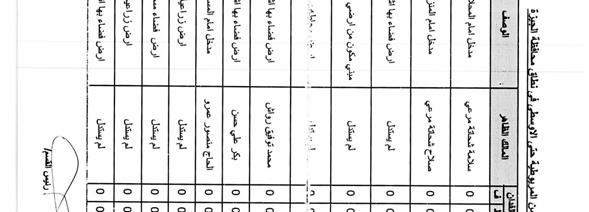 ن المربوطية حتى الاوسطى فى نطاق محافظة الجيزة
الوصف
المالك الظاهر
مدخل امام المحلا
سلامة شحاتة مرعي
مدخل امام المنز
صلاح شحاتة مرعي
ارض فضاء بها اث
لم يستدل
مبني مكون من ارضي
لم يستدل
ارض فضاء بها اث
محمد توفيق رواش
ارض فضاء بها اث
بكر علي حسن
مدخل امام المس
الحاج منصور عمرو
ارض زراعي
لم يستدل
ارض فضاء مس
لم يستدل
ارض زراعي
لم يستدل
ارض فضاء بها اث
لم يستدل
فدان
ف
0 0 0 0 0 0 0 0 0 0
رئيس القسم/